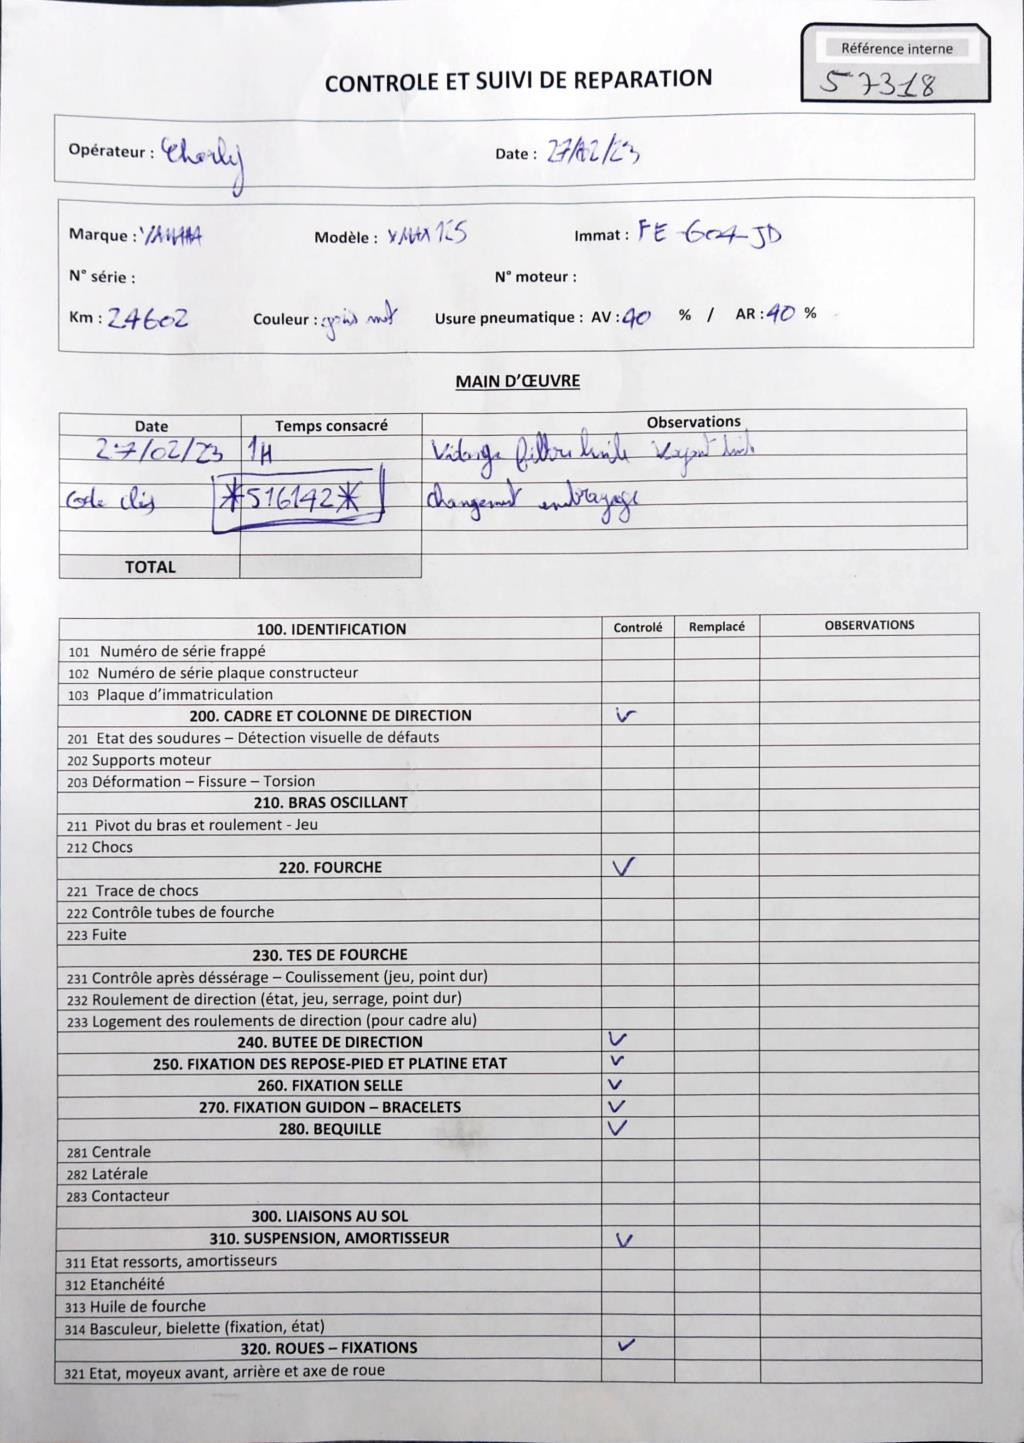 Référence interne
57318
CONTROLE ET SUIVI DE REPARATION
Opérateur : Charly Date : 27/02/23
Marque : YAMAHA Modèle : XMAX 125 Immat : FE-604-JD
N° série : N° moteur :
Km : 24602 Couleur : gris mat Usure pneumatique : AV : 40 % / AR : 40 %
MAIN D'ŒUVRE
Date Temps consacré Observations
27/02/23 1H Vidange filtre huile
Code clés *516142* changement embrayage
TOTAL
100. IDENTIFICATION Controlé Remplacé OBSERVATIONS
101 Numéro de série frappé
102 Numéro de série plaque constructeur
103 Plaque d'immatriculation
200. CADRE ET COLONNE DE DIRECTION ✓
201 Etat des soudures – Détection visuelle de défauts
202 Supports moteur
203 Déformation – Fissure – Torsion
210. BRAS OSCILLANT
211 Pivot du bras et roulement - Jeu
212 Chocs
220. FOURCHE ✓
221 Trace de chocs
222 Contrôle tubes de fourche
223 Fuite
230. TES DE FOURCHE
231 Contrôle après déssérage – Coulissement (jeu, point dur)
232 Roulement de direction (état, jeu, serrage, point dur)
233 Logement des roulements de direction (pour cadre alu)
240. BUTEE DE DIRECTION ✓
250. FIXATION DES REPOSE-PIED ET PLATINE ETAT ✓
260. FIXATION SELLE ✓
270. FIXATION GUIDON – BRACELETS ✓
280. BEQUILLE ✓
281 Centrale
282 Latérale
283 Contacteur
300. LIAISONS AU SOL
310. SUSPENSION, AMORTISSEUR ✓
311 Etat ressorts, amortisseurs
312 Etanchéité
313 Huile de fourche
314 Basculeur, bielette (fixation, état)
320. ROUES – FIXATIONS ✓
321 Etat, moyeux avant, arrière et axe de roue